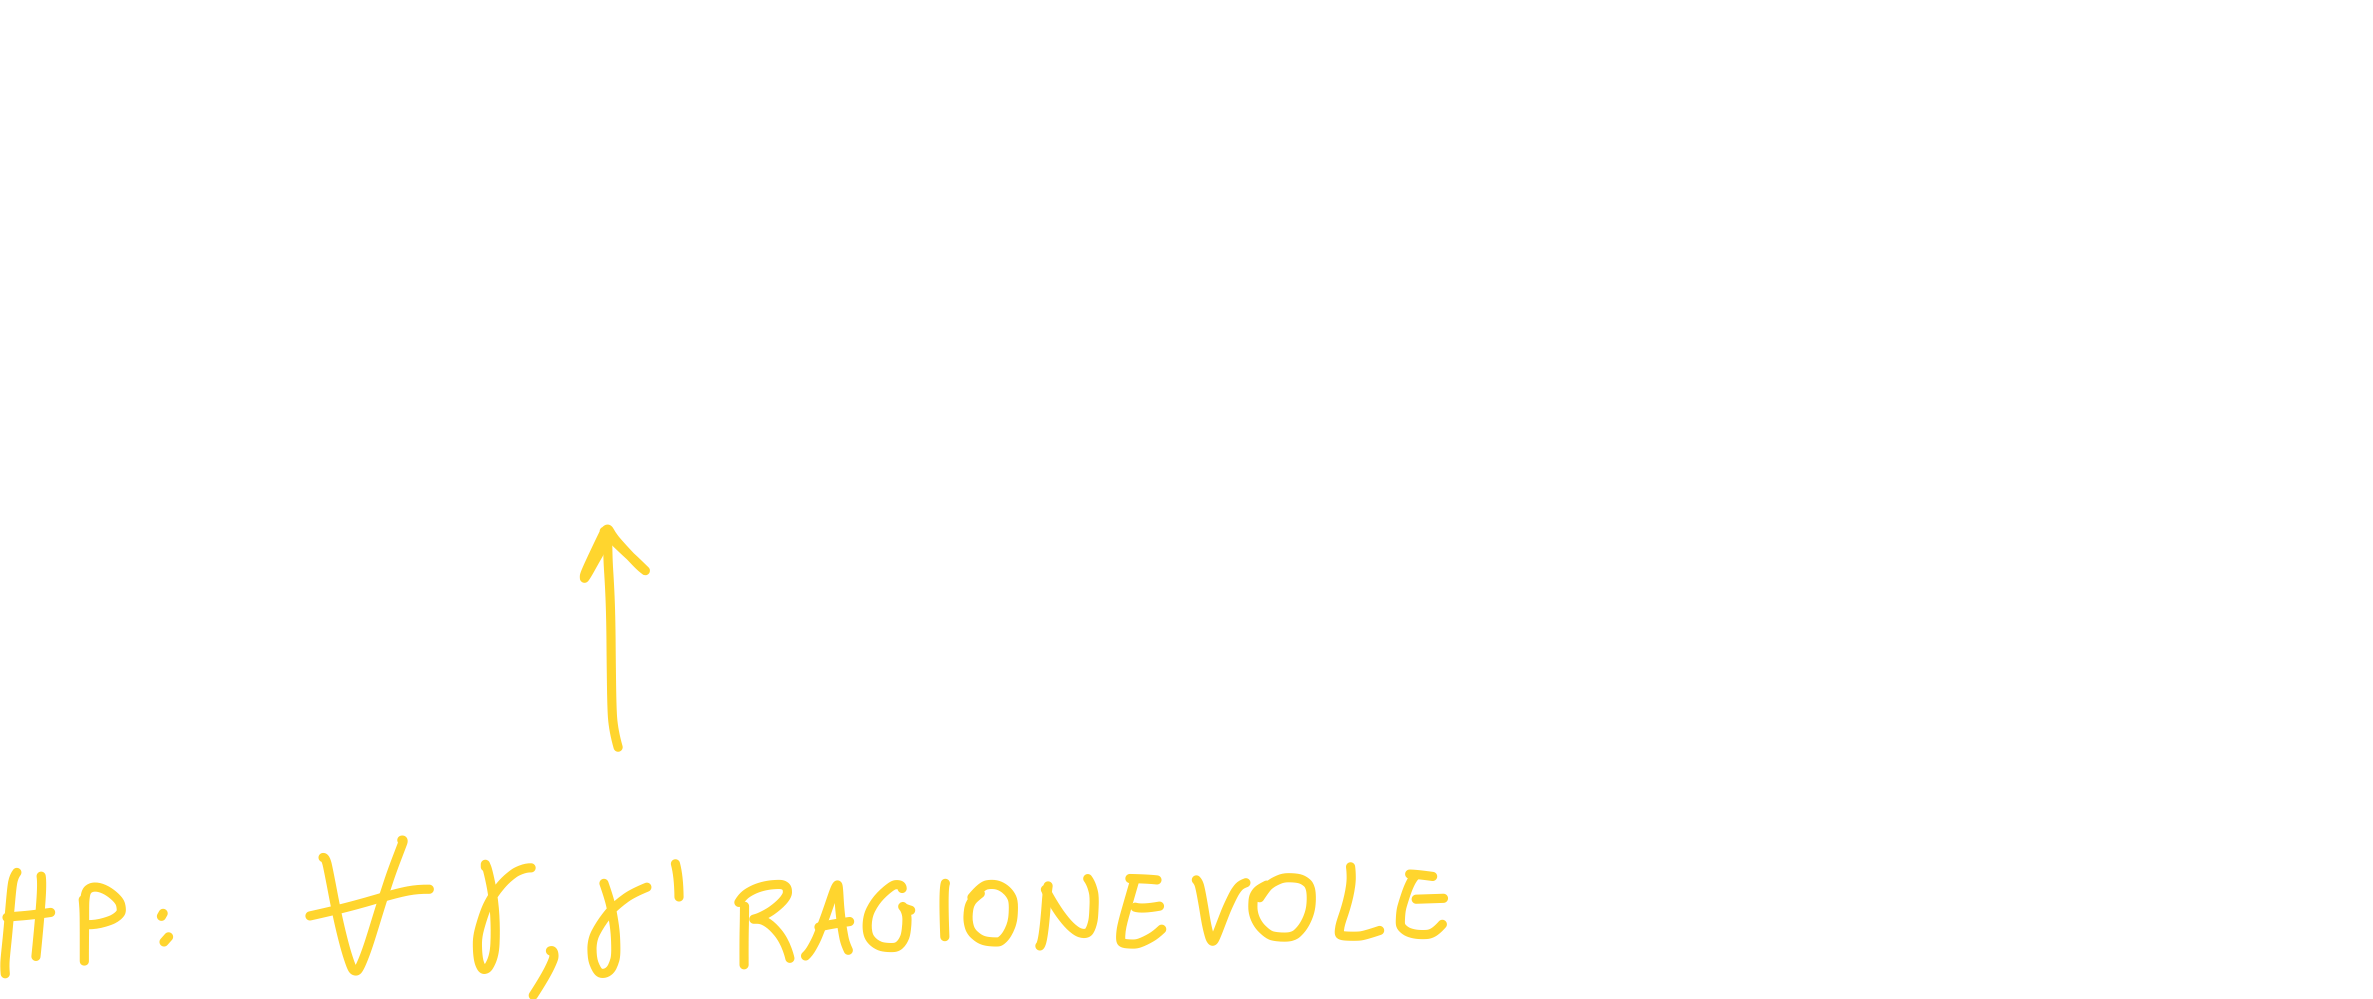 HP: ∀ γ, γ' RAGIONEVOLE